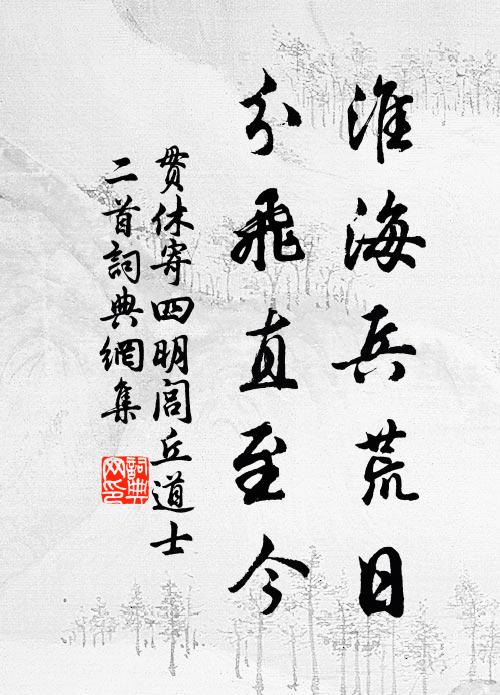 淮海兵荒日
分飛直至今
貫休寄四明閭丘道士
二首詞典網集
詞典
网印